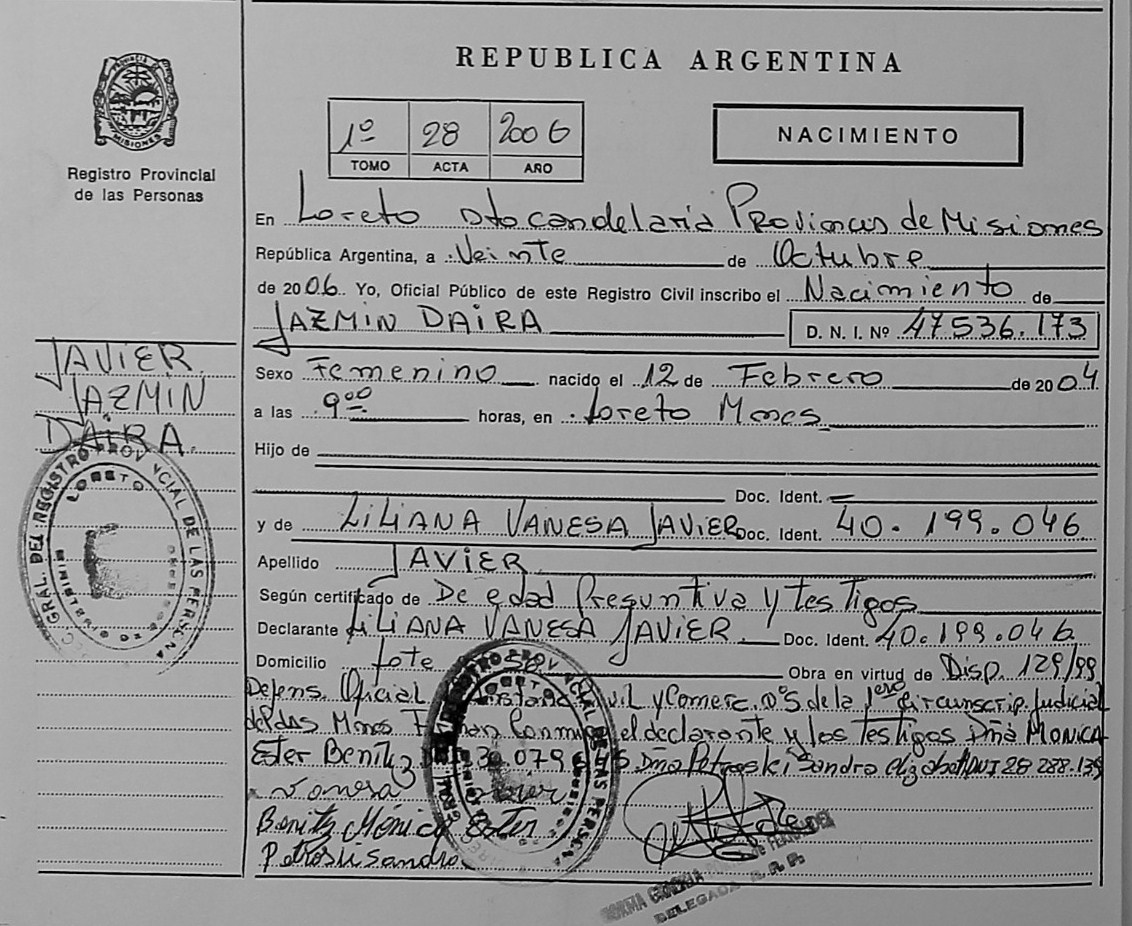 REPUBLICA ARGENTINA
PROVINCIA DE
MISIONES
Registro Provincial
de las Personas
1º 28 2006
TOMO ACTA AÑO
NACIMIENTO
En Loreto Dto Candelaria Provincia de Misiones
República Argentina, a Veinte de Octubre
de 2006. Yo, Oficial Público de este Registro Civil inscribo el Nacimiento de
JAZMIN DAIRA D. N. I. Nº 47536.173
JAVIER
JAZMIN
DAIRA.
Sexo Femenino nacido el 12 de Febrero de 2004
a las 9 00 horas, en Loreto Mnes
Hijo de
Doc. Ident.
y de LILIANA VANESA JAVIER Doc. Ident. 40.199.046
Apellido JAVIER
Según certificado de De edad Presuntiva y testigos
Declarante LILIANA VANESA JAVIER Doc. Ident. 40.199.046
Domicilio Lote Obra en virtud de Disp. 129/99
Defens. Oficial y Comerc. nº5 de la 1era circunscrip. Judicial
Mnes Firman conmigo el declarante y los testigos Dña MONICA
Ester Benitz 30.079 Dña Petroski Sandra DNI 28 288.139
Vanesa Javier
Benitz Mónica Ester
Petroski Sandra
GRAL. DEL REGISTRO PROVINCIAL DE LAS PERSONAS
LORETO
REGISTRO PROVINCIAL DE LAS PERSONAS
LORETO
NORMA DE FERNANDEZ
DELEGADA R.P.P.